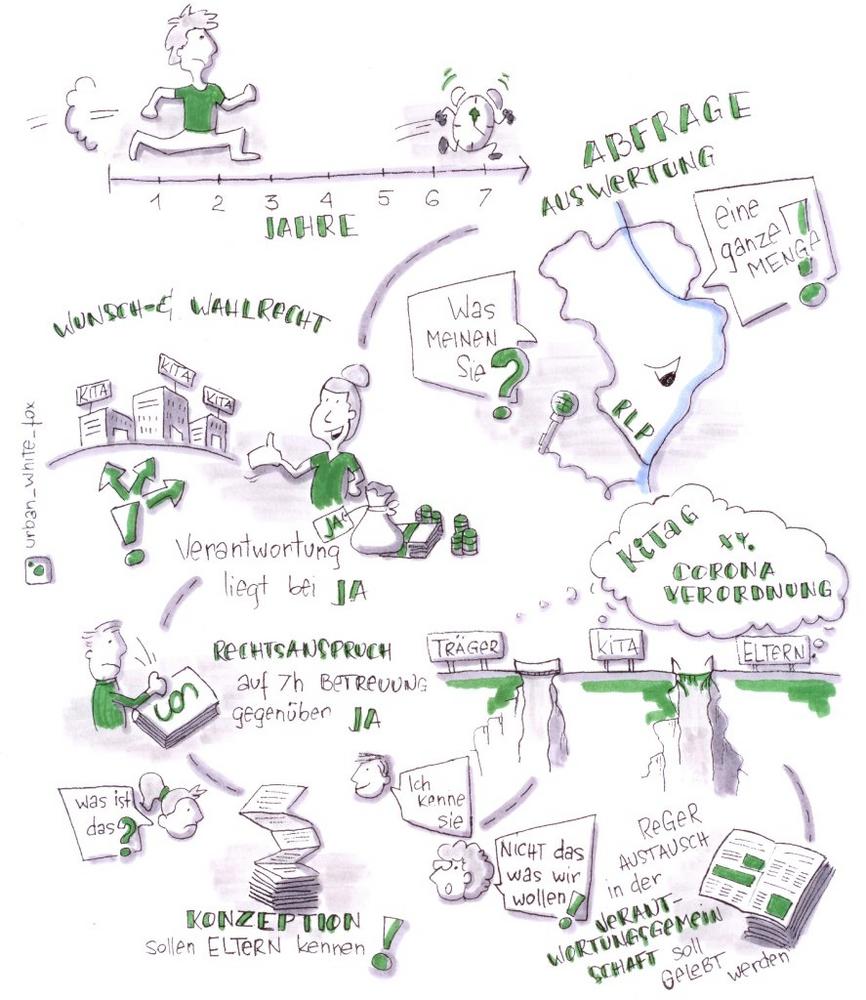 1 2 3 4 5 6 7
JAHRE
ABFRAGE
AUSWERTUNG
eine
ganze
MENGE
!
Was
MEINEN
Sie?
RLP
WUNSCH- & WAHLRECHT
KITA
KITA
KITA
!
JA
Verantwortung
liegt bei JA
urban_white_fox
KiTaG
vs.
CORONA
VERORDNUNG
TRÄGER
KITA
ELTERN
RECHTSANSPRUCH
auf 7h BETREUUNG
gegenüber JA
§
was ist
das?
KONZEPTION
sollen ELTERN kennen!
Ich
kenne
sie
NICHT das
was wir
wollen!
ReGER
AUSTAUSCH
in der
VERANT-
WORTUNGSGEMEIN
SCHAFT soll
GELEBT werden